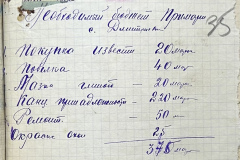 Необходимый бюджет Примарии
с. Дмитровка
35
Покупка извести 20 мар
Побелка 40 мар
Мазка глиной — 20 мар
Канц принадлежност — 220 мар
Ремонт — 50 —
Окраска окон 25
375 мар